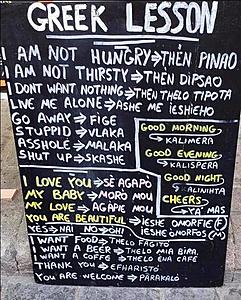 GREEK LESSON
I AM NOT HUNGRY → THEN PINAO
I AM NOT THIRSTY → THEN DIPSAO
I DONT WANT NOTHING → THEN THELO TIPOTA
LIVE ME ALONE → ASHE ME IESHIEHO
GO AWAY → FIGE
STUPPID → VLAKA
ASSHOLE → MALAKA
SHUT UP → SKASHE
GOOD MORNING
→ KALIMERA
GOOD EVENING
→ KALISFERA
GOOD NIGHT
→ KALINIHTA
CHEERS
→ YA' MAS
I LOVE YOU → SE AGAPO
MY BABY → MORO MOU
MY LOVE → AGAPIE MOU
YOU ARE BEAUTIFUL → IESHE OMORFIE (F)
IESHE OMORFOS (M)
YES → NAI NO → OHI
I WANT FOOD → THELO FAGITO
I WANT A BEER → THELO MIA BIRA
I WANT A COFFE → THELO ENA CAFE
THANK YOU → EFHARISTO
YOU ARE WELCOME → PARAKALO